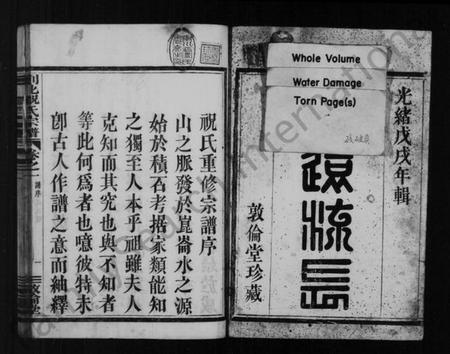 Whole Volume
Water Damage
Torn Page(s)
光緒戊戌年輯
源流長
敦倫堂珍藏
祝氏重修宗譜序
山之脈發於崑崙水之源
始於積石考据家類能知
之獨至人本乎祖雖夫人
克知而其究也與不知者
等此何爲者也噫彼特未
卽古人作譜之意而紬釋
祝氏宗譜
卷之一
譜序
敦倫堂